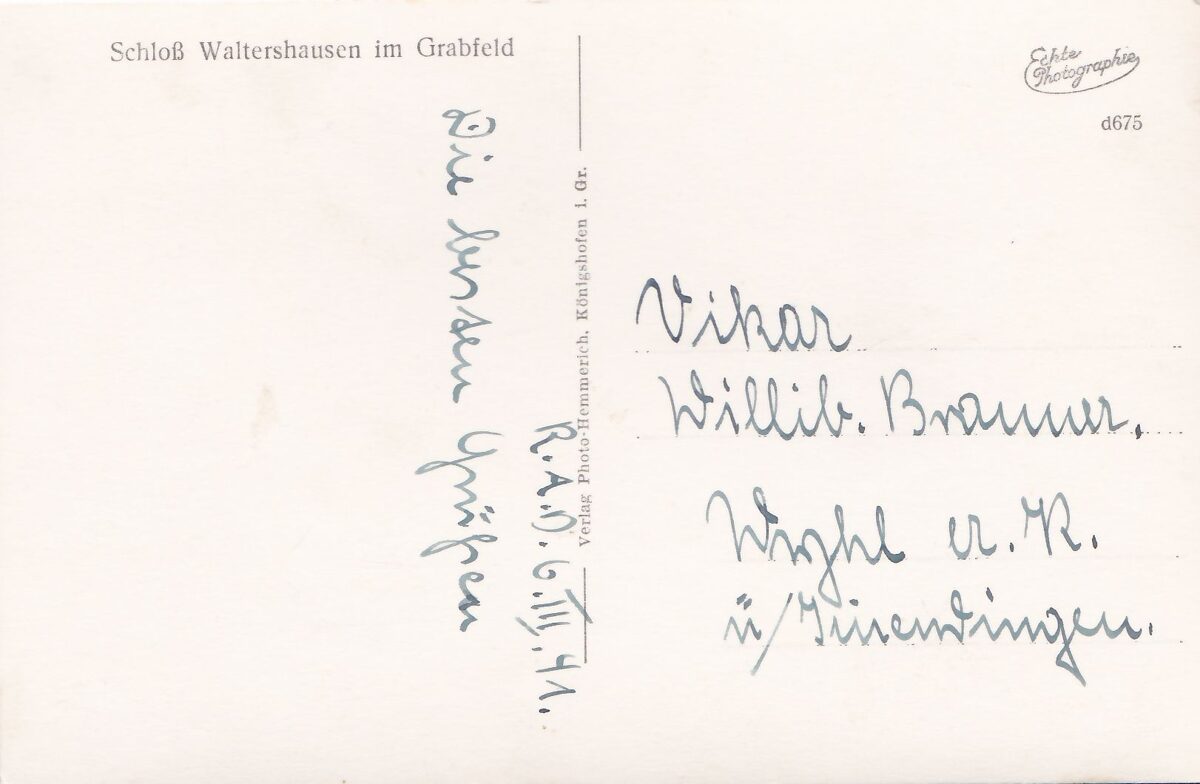 Schloß Waltershausen im Grabfeld
Echte
Photographie
d675
Die besten Grüßen
R.A.D. 6.III.41.
Verlag Photo-Hemmerich, Königshofen i. Gr.
Vikar
Willib.
Wyhl a. K.
ü/Emmendingen.